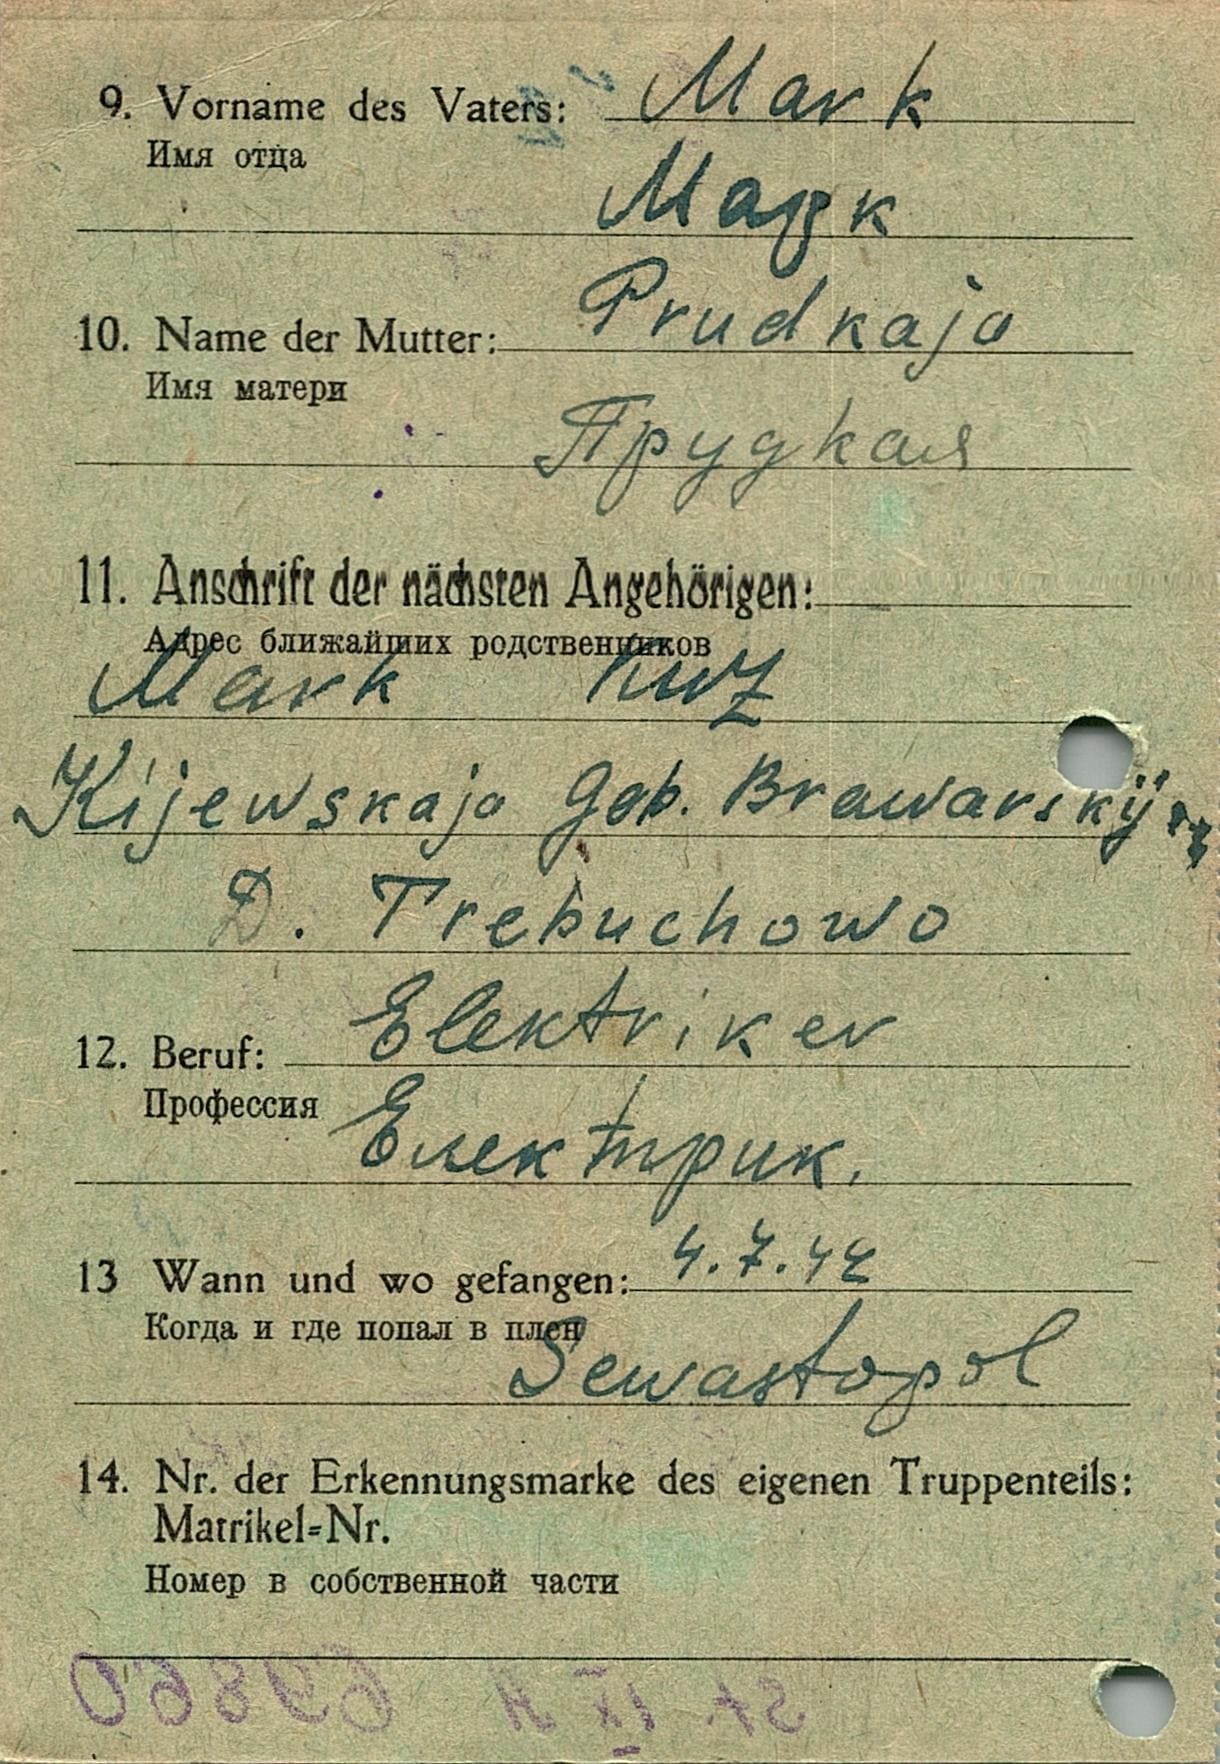 9. Vorname des Vaters: Mark
Имя отца
Марк
10. Name der Mutter: Prudkaja
Имя матери
Прудкая
11. Anschrift der nächsten Angehörigen:
Адрес ближайших родственников
Mark
Kijewskaja Gob. Brawarskij
D. Trebuchowo
12. Beruf: Elektriker
Профессия
Електрик.
13 Wann und wo gefangen: 4.7.42
Когда и где попал в плен
Sewastopol
14. Nr. der Erkennungsmarke des eigenen Truppenteils:
Matrikel=Nr.
Номер в собственной части
St. IX A 69860